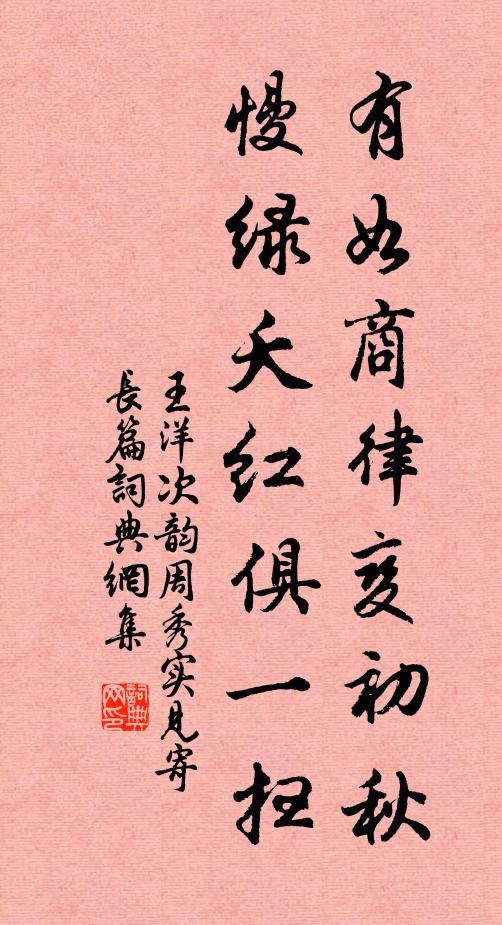 有如商律变初秋
慢绿夭红俱一扫
王洋次韵周秀实见寄
長篇詞典網集
詞典网印